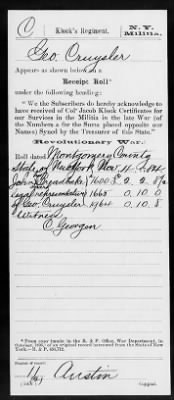 C
Klock's Regiment.
N.Y.
Militia.
Geo. Cruysler
Appears as shown below on a
Receipt Roll*
under the following heading:
"We the Subscribers do hereby acknowledge to
have received of Col Jacob Klock Certificates for
our Services in the Militia in the late War (of
the Numbers & for the Sums placed opposite our
Names) Signed by the Treasurer of this State."
Revolutionary War.
Roll dated Montgomery County
State of New York Nov. 4,
John
legal representative 1665 0. 10. 0
of Geo. Cruysler 1764 0 10 8
Witness
C. Georgon
*From copy (made in the R. & P. Office, War Department, in
of an original record borrowed from the State of New
York.—R. & P.
Number of record:
Austin
Copyist.